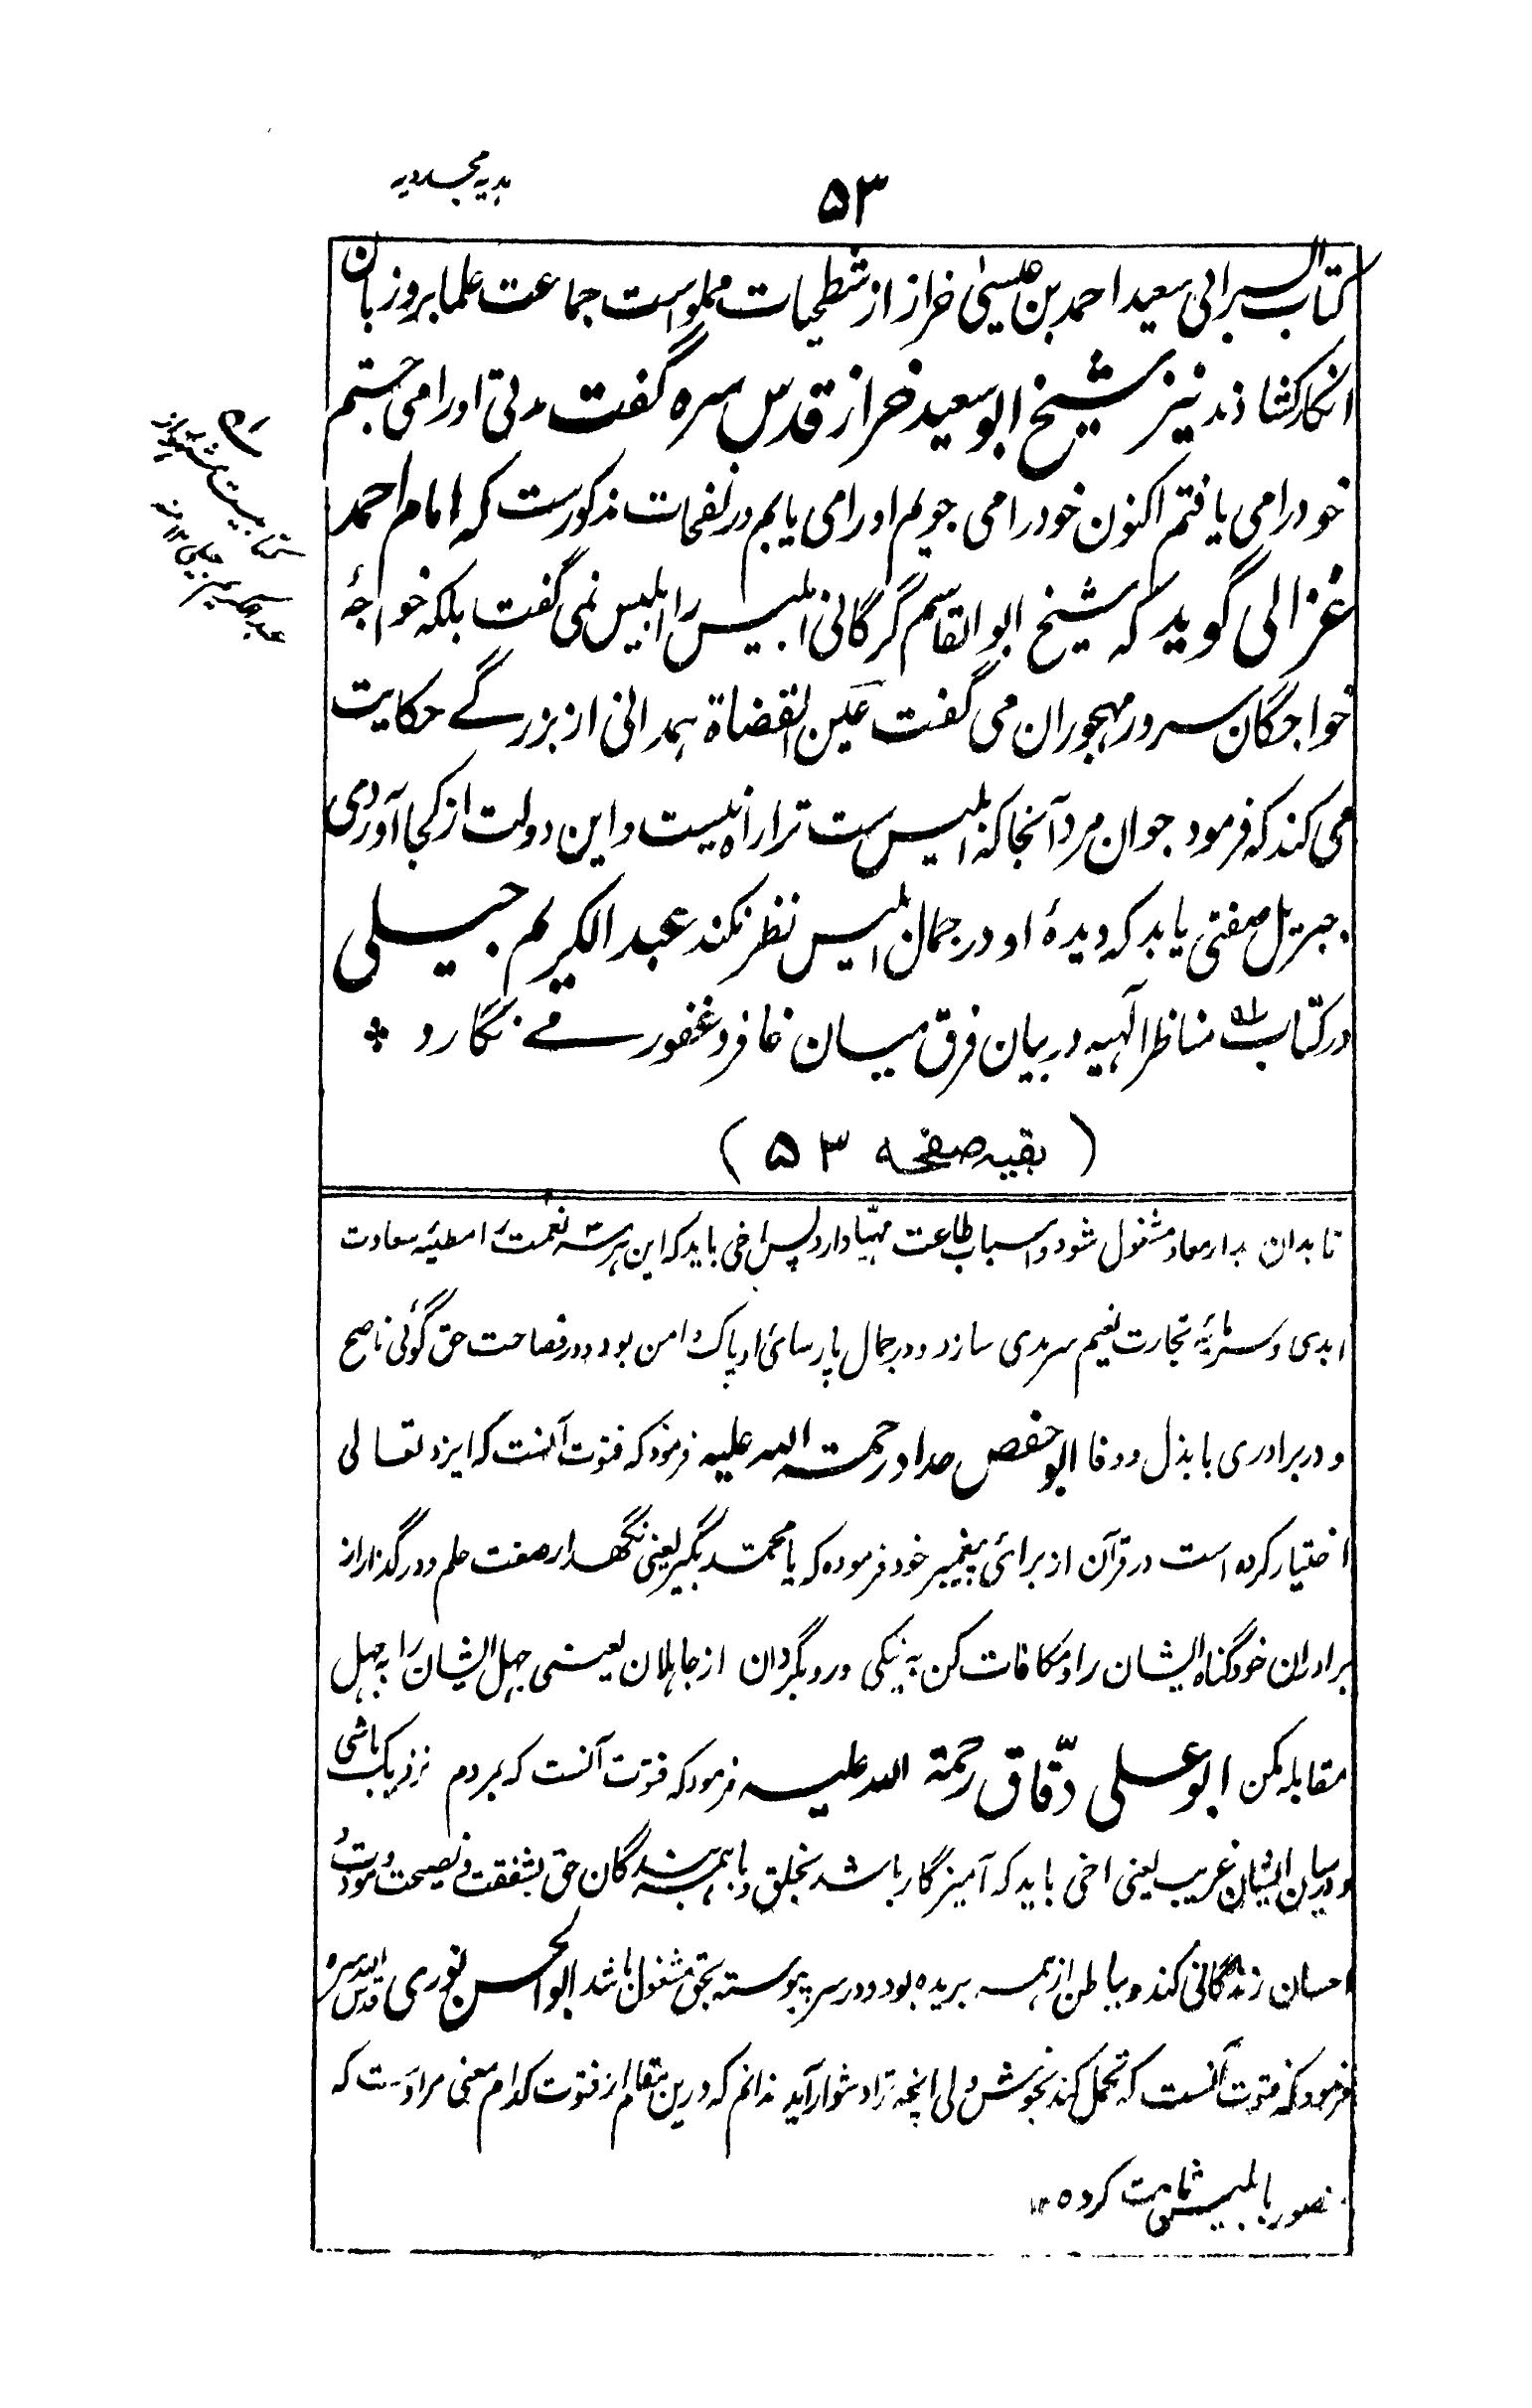 هدیه مجددیه
۵۳
کتاب السر ابی سعید احمد بن عیسیٰ خراز از شطحیات مملو است جماعت علما برو زبان
انکار کشادند نیز شیخ ابو سعید خراز قدس سره گفت مدتی او را می جستم
خود را می یافتم اکنون خود را می جویم او را می یابم در نفحات مذکورست که امام احمد
غزالی گوید که شیخ ابوالقاسم گرگانی ابلیس را ابلیس نمی گفت بلکه خواجهٔ
خواجگان سرور مهجوران می گفت عین القضاة همدانی از بزرگے حکایت
می کند که فرمود جوان مرد آنجا که ابلیس ست ترا راه نیست و این دولت از کجا آوردمی
جبریل صفتی باید که دیدهٔ او در جمال ابلیس نظر نکند عبد الکریم جیلی
در کتاب مناظر الٰهیه در بیان فرق میان غافر و غفور مے نگارد *
(بقیه صفحه ۵۳)
تا بدان بدار معاد مشغول شود و اسباب طاعت مهیّا دارد پس اخی باید که این هر سه نعمت را مطیهٔ سعادت
ابدی و سرمایهٔ تجارت نعیم سرمدی سازد و در جمال پارسائی او پاک دامن بود و در فصاحت حق گوئی ناصح
و در برادری با بذل و وفا ابو حفص حداد رحمته الله علیه فرمود که فتوت آنست که ایزد تعالی
اختیار کرده است در قرآن از برائی پیغمبر خود فرموده که یا محمّد بگیر یعنی نگهدار صفت حلم و درگذار از
برادران خود گناه ایشان را و مکافات کن به نیکی و رو بگردان از جاهلان یعنی جهل ایشان را به جهل
مقابله مکن ابو علی دقّاق رحمة الله علیه فرمود که فتوت آنست که بمردم نزدیک باشی
و در میان ایشان غریب یعنی اخی باید که آمیزگار باشد بخلق و با همه بندگان حق بشفقت و نصیحت و مودت و
احسان زندگانی کند و بباطن از همه بریده بود و در سر پیوسته بحق مشغول باشد ابو الحسن نوری قدس الله سره
فرمود که فتوت آنست که تحمل کند بخوش دلی انچه ترا دشوار آید ندانم که درین مقام از فتوت کدام معنی مرادست که
منصور بابلیس ثابت کرده ۱۲